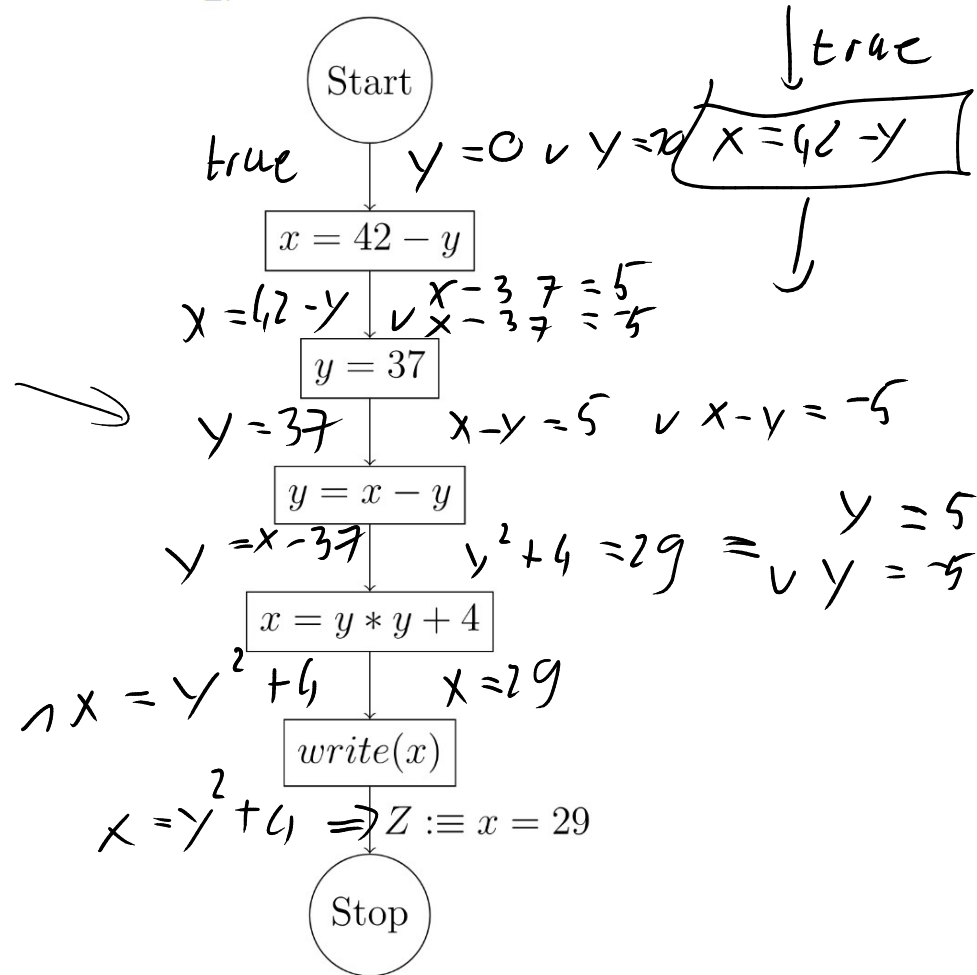 Start
true
true y = 0 ∨ y = 10 x = 42 - y
x = 42 − y
x = 42 - y ∨ x - 37 = 5
x - 37 = -5
y = 37
y = 37 x - y = 5 ∨ x - y = -5
y = x − y
y = x - 37 y² + 4 = 29 ≡ y = 5
∨ y = -5
x = y ∗ y + 4
∧ x = y² + 4 x = 29
write(x)
x = y² + 4 ⇒ Z :≡ x = 29
Stop